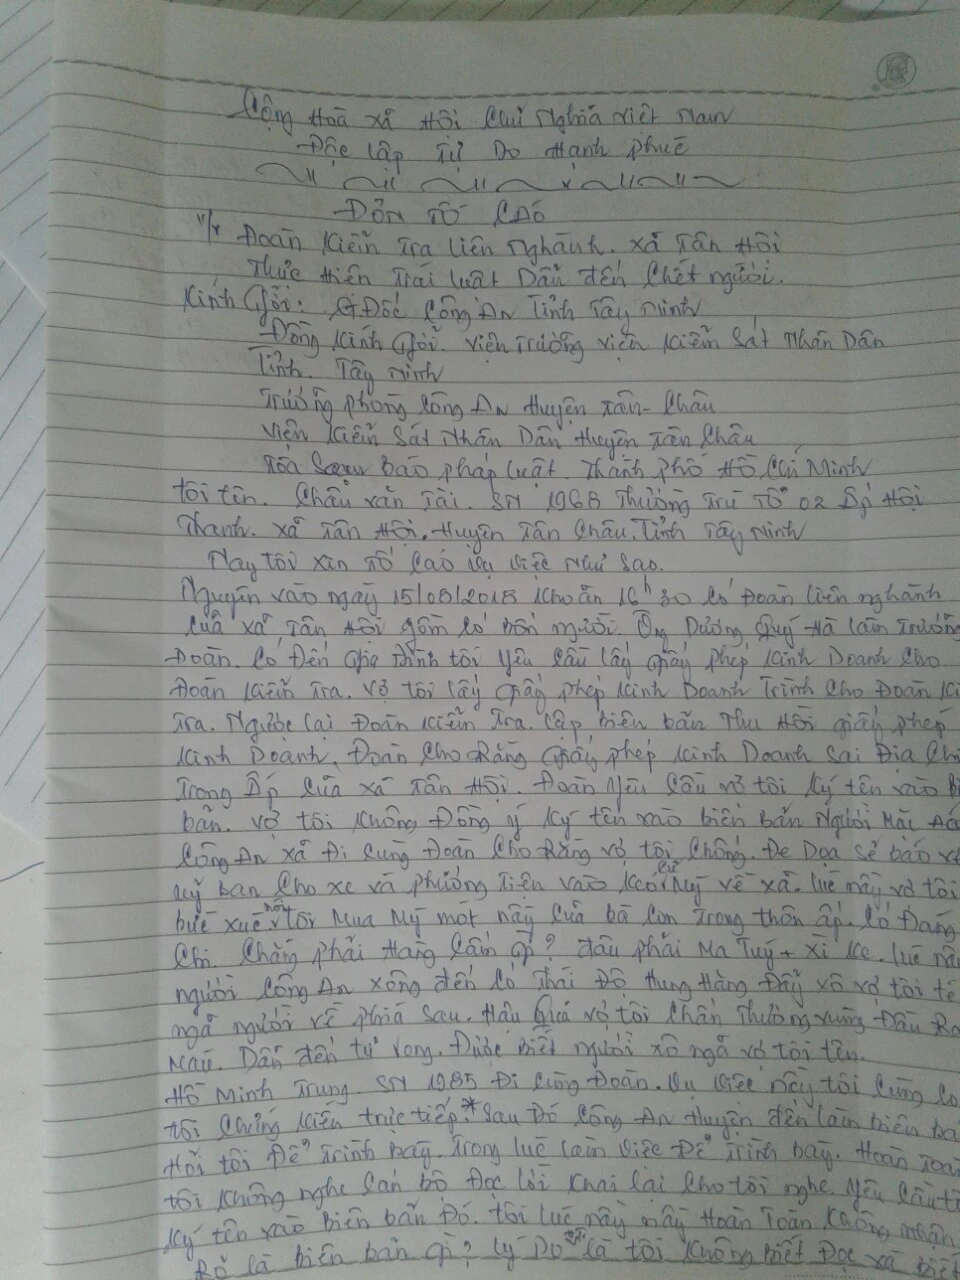 Cộng Hoà xã Hội Chủ Nghĩa việt Nam
Độc lập Tự Do Hạnh phúc
ĐƠN TỐ CÁO
V/v Đoàn Kiễn Tra liên Nghành. xã Tân Hội
Thực Hiên Trái luật Dẫn đến Chết người.
Kính Gởi: GĐốc Công An Tỉnh Tây Ninh
Đồng Kính Gởi. viện Trưởng viện Kiễn Sát Nhân Dân
Tỉnh. Tây Ninh
Trưởng phòng Công An Huyện Tân-Châu
viện Kiễn Sát Nhân Dân Huyện Tân Châu
Tòa Soạn Báo pháp luật Thành phố Hồ Chí Minh
tôi tên. Châu văn Tài. SN 1968 Thường Trú Tổ 02 Ấp Hội
Thanh. xã Tân Hội. Huyện Tân Châu. Tỉnh Tây Ninh
Nay tôi xin tố Cáo vụ việc Như Sao.
Nguyên vào ngày 15/08/2018 Khoản 16h30 Có Đoàn liên nghành
Của xã Tân Hội gồm Có bốn người. Ông Dương Quý Hà làm Trưởng
Đoàn. Có Đến Gia Đình tôi yêu Cầu lấy Giấy phép Kinh Doanh Cho
Đoàn Kiễn Tra. vợ tôi lấy Giấy phép Kinh Doanh Trình Cho Đoàn
Tra. Ngược lại Đoàn Kiễn Tra. lập biên bản Thu Hồi giấy phép
Kinh Doanh. Đoàn Cho Rằng Giấy phép Kinh Doanh Sai Địa Chỉ
Trong Ấp Của xã Tân Hội. Đoàn yêu Cầu vợ tôi Ký tên vào
bản. vợ tôi Không Đồng ý Ký tên vào biên bản Người Mặc
Công An xã Đi Cùng Đoàn Cho Rằng vợ tôi Chống. Đe Dọa Sẽ báo
uỷ ban Cho xe và phương Tiện vào Kéo Củ Mỳ về xã. lúc nầy vợ tôi
bức xuc nói tôi Mua Mỳ mót nầy Của bà Con Trong thôn ấp. Có Đáng
Chi. Chẳn phải Hàng Cấm Gì? đâu phải Ma Tuý + xì Ke. lúc
người Công An xông đến Có Thái Độ Hung Hăng Đẩy xô vợ tôi té
ngã người về phía Sau. Hậu Quả vợ tôi Chấn Thương vùng Đầu Ra
Máu. Dẫn đến tử vong. Được biết người xô ngã vợ tôi tên.
Hồ Minh Trung SN 1985 Đi Cùng Đoàn. vụ việc nầy tôi Cũng
tôi Chứng Kiến trực tiếp.* Sau Đó Công An Huyện đến làm biên
Hỏi tôi Để Trình bày. Trong lúc làm việc Để Trình bày. Hoàn
tôi Không nghe Cán bộ Đọc lời Khai lại Cho tôi nghe. yêu Cầu
Ký tên vào biên bản Đó. tôi lúc nầy Hoàn Toàn Không nhận
Rõ là biên bản gì? lý Do là tôi Không biết Đọc và biết